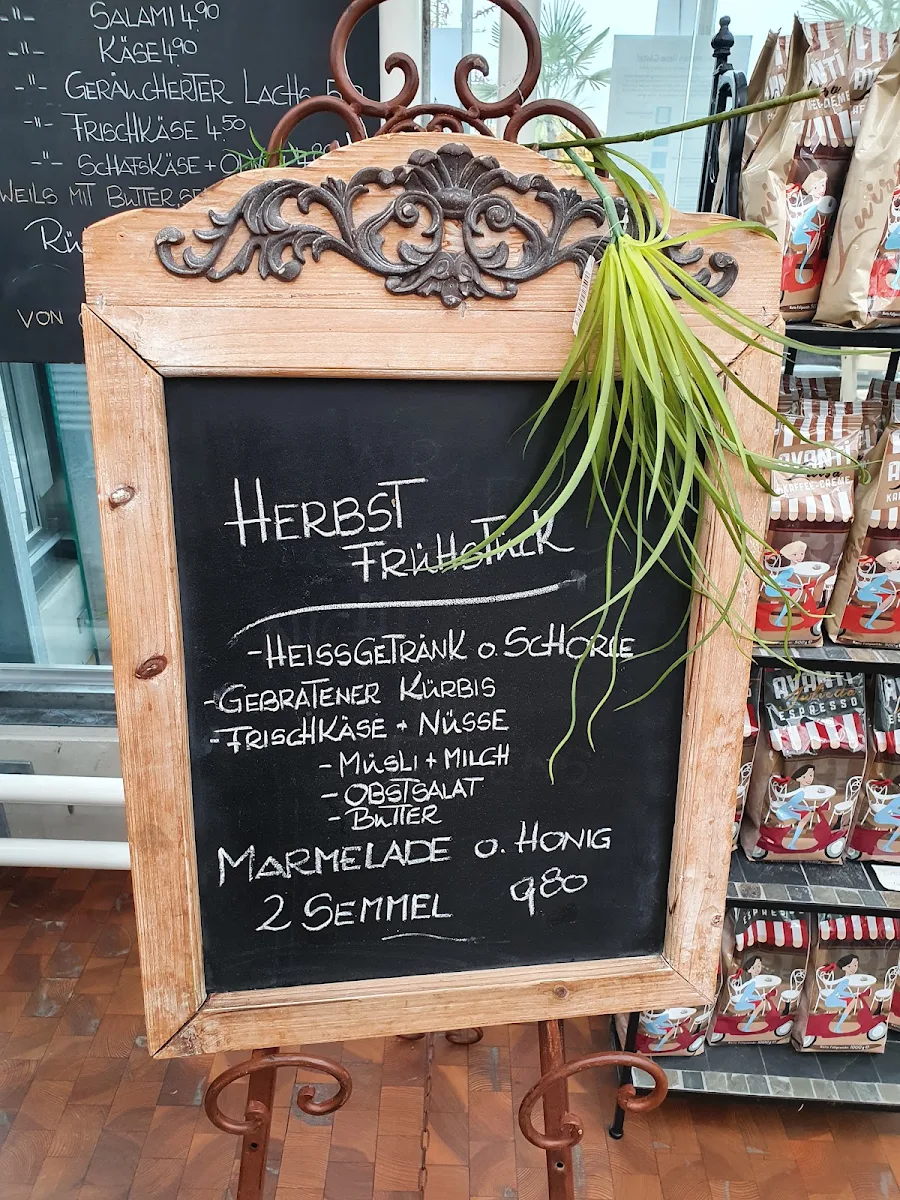 -"- SALAMI 4,90
-"- KÄSE 4,90
-"- GERÄUCHERTER LACHS
-"- FRISCHKÄSE 4,50
-"- SCHAFSKÄSE +
WEILS MIT BUTTER
VON
HERBST
FRÜHSTÜCK
- HEISSGETRÄNK o. SCHORLE
- GEBRATENER KÜRBIS
- FRISCHKÄSE + NÜSSE
- MÜSLI + MILCH
- OBSTSALAT
- BUTTER
MARMELADE o. HONIG
2 SEMMEL 9,80
AVANTI
AVANTI
KAFFEE-CREME
AVANTI
ESPRESSO
ESPRESSO